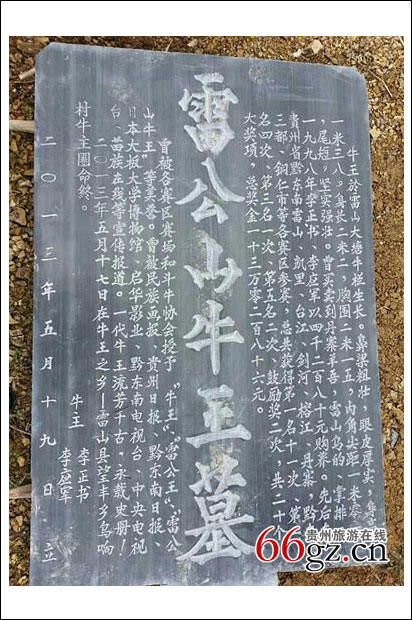 牛王於雷山大塘牛栏生长。鼻梁粗壮，眼皮厚实，身
一米三八，身长二米二，胸围二米一五，内角尖距一米零
尾短，坚实强壮。曾买卖到丹寨羊吾，雷山乌的、掌排
一九九八年李正书、李应军以四千二百八十元购养。先后
贵州省黔东南雷山、凯里、台江、剑河、榕江、丹寨，黔
三都、铜仁市等各赛区参赛，总共获得第一名十一次，第
名四次、第三名一次、第五名二次、鼓励奖二次，共二十
大奖项，总奖金一十三万零二百八十六元。
雷公山牛王墓
曾被各赛区赛场和斗牛协会授予“牛王”、“雷公王”、“雷公
山牛王”等美誉。曾被民族画报、贵州日报、黔东南日报、
日本大板大学博物馆、启华影业、黔东南电视台、中央电视
台、苗族在线等宣传报道。一代牛王流芳千古，永载史册！
二〇一三年五月十七日在牛王之乡—雷山县望丰乡乌响
村牛王圈命终。
牛王 李正书
李应军
二〇一三年五月十九日 立
贵州旅游在线
66gz.cn